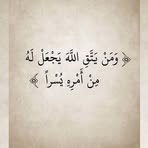 ﴿ وَمَنْ يَتَّقِ اللَّهَ يَجْعَلْ لَهُ
مِنْ أَمْرِهِ يُسْراً ﴾